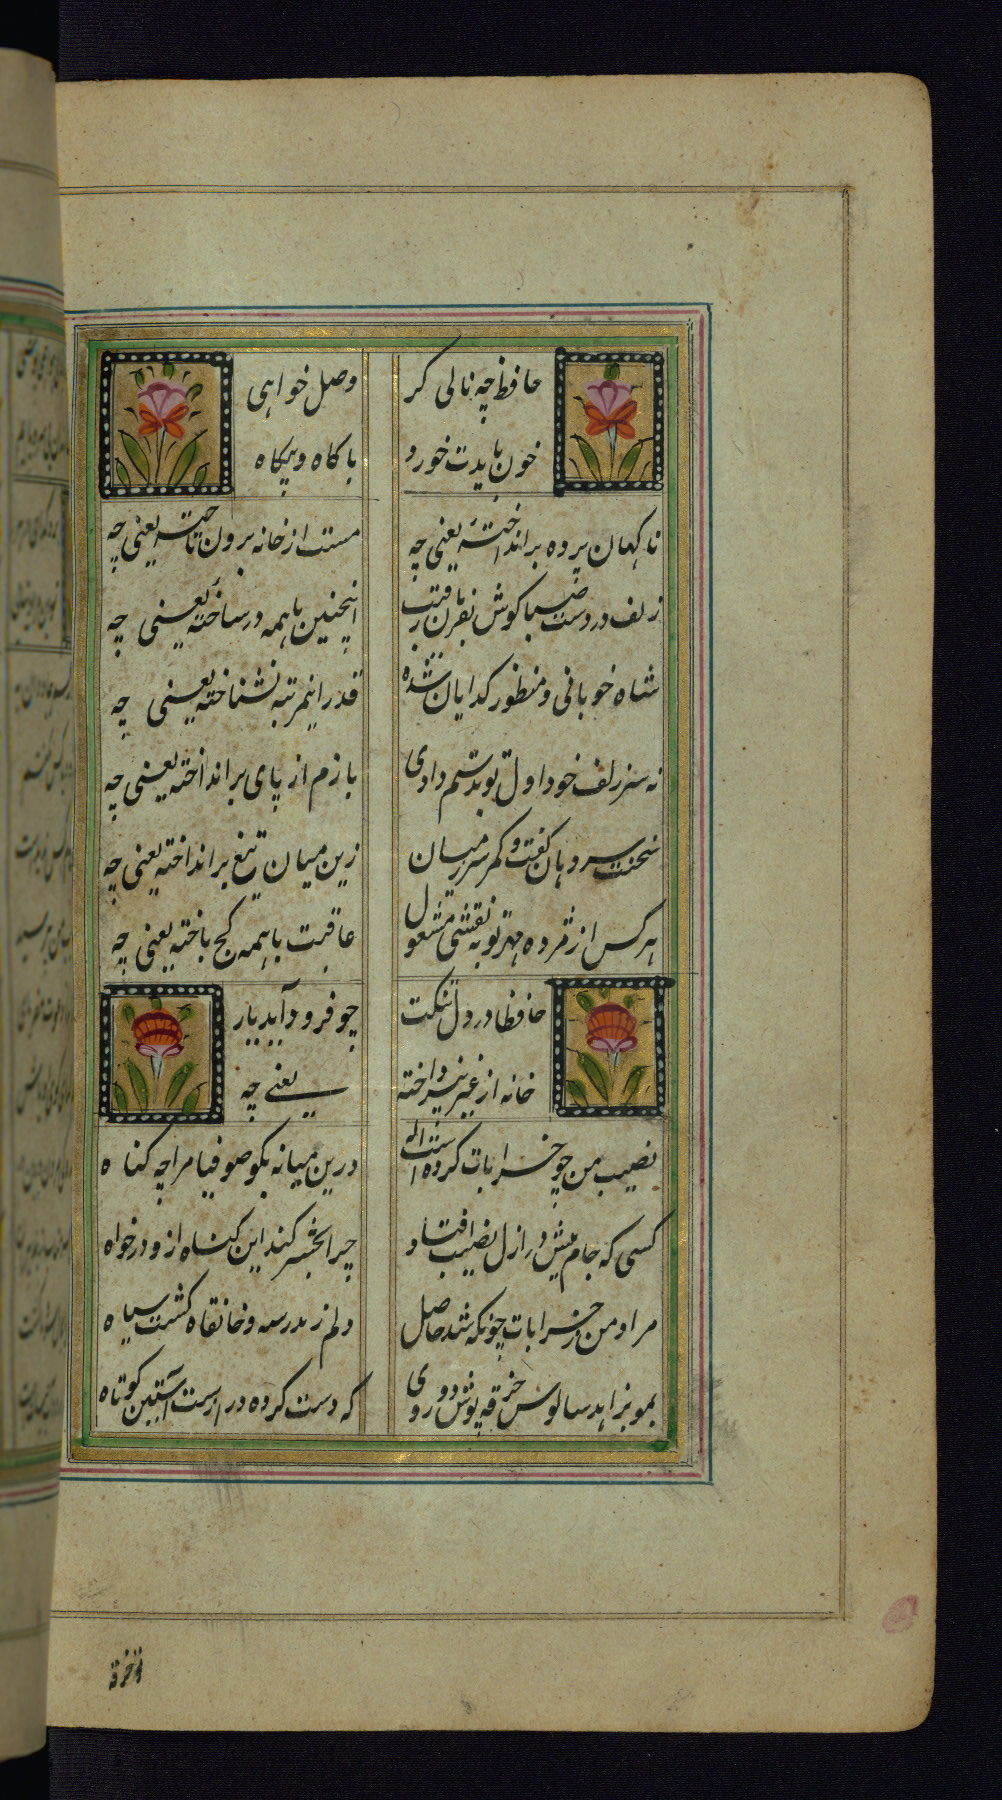 حافظ چه نالی گر
وصل خواهی
خون بایدت خورد
با گاه و بیگاه
ناگهان پرده برانداختهٔ یعنی چه
مست از خانه برون تاختهٔ یعنی چه
زلف در دست صبا گوش بفرمان رقیب
اینچنین باهمه درساختهٔ یعنی چه
شاه خوبانی و منظور گدایان شدهٔ
قدر اینمرتبه نشناختهٔ یعنی چه
نه سر زلف خود اول تو بدستم دادی
بازم از پای برانداختهٔ یعنی چه
سخنت سر دهان گفت و کمر سر میان
زین میان تیغ برانداختهٔ یعنی چه
هر کس از مهرهٔ مهر تو به نقشی مشغول
عاقبت باهمه کج باختهٔ یعنی چه
حافظا در دل تنگت
چو فرود آید یار
خانه از غیر نپرداختهٔ
یعنی چه
نصیب من چو خرابات کرده است اله
درین میانه بگو صوفیا مرا چه گناه
کسی که جام میش در ازل نصیب افتاد
چرا بحشر کنند این گناه ازو درخواه
مراد من ز خرابات چونکه شد حاصل
دلم ز مدرسه و خانقاه گشت سیاه
بگو بزاهد سالوس خرقه پوش دوروی
که دست کرده دراز است آستین کوتاه